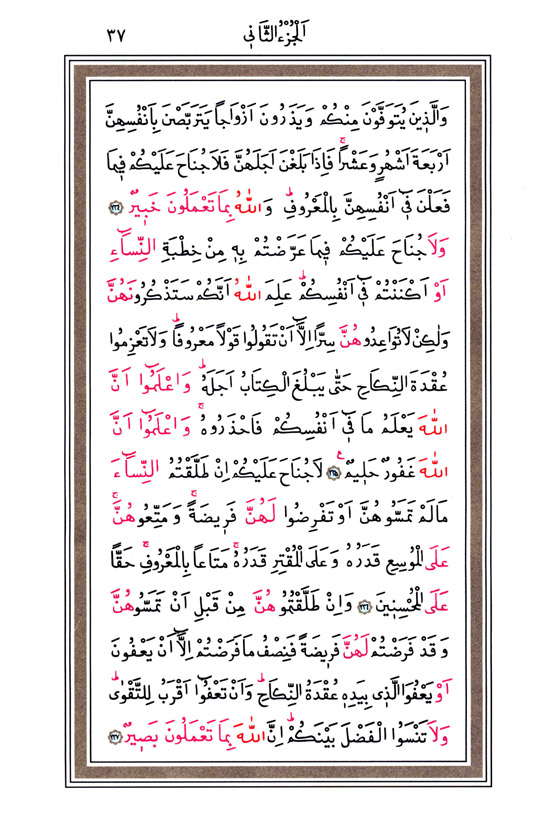 اَلْجُزْءُ الثَّانٖي ٣٧
وَالَّذٖينَ يُتَوَفَّوْنَ مِنْكُمْ وَيَذَرُونَ اَزْوَاجاً يَتَرَبَّصْنَ بِاَنْفُسِهِنَّ
اَرْبَعَةَ اَشْهُرٍ وَعَشْراًۚ فَاِذَا بَلَغْنَ اَجَلَهُنَّ فَلَا جُنَاحَ عَلَيْكُمْ فٖيمَا
فَعَلْنَ فٖٓي اَنْفُسِهِنَّ بِالْمَعْرُوفِۜ وَاللّٰهُ بِمَا تَعْمَلُونَ خَبٖيرٌ ﴿٢٣٤﴾
وَلَا جُنَاحَ عَلَيْكُمْ فٖيمَا عَرَّضْتُمْ بِهٖ مِنْ خِطْبَةِ النِّسَٓاءِ
اَوْ اَكْنَنْتُمْ فٖٓي اَنْفُسِكُمْۜ عَلِمَ اللّٰهُ اَنَّكُمْ سَتَذْكُرُونَهُنَّ
وَلٰكِنْ لَا تُوَاعِدُوهُنَّ سِراًّ اِلَّٓا اَنْ تَقُولُوا قَوْلاً مَعْرُوفاًۜ وَلَا تَعْزِمُوا
عُقْدَةَ النِّكَاحِ حَتّٰى يَبْلُغَ الْكِتَابُ اَجَلَهُۜ وَاعْلَمُٓوا اَنَّ
اللّٰهَ يَعْلَمُ مَا فٖٓي اَنْفُسِكُمْ فَاحْذَرُوهُۚ وَاعْلَمُٓوا اَنَّ
اللّٰهَ غَفُورٌ حَلٖيمٌ۟ ﴿٢٣٥﴾ لَا جُنَاحَ عَلَيْكُمْ اِنْ طَلَّقْتُمُ النِّسَٓاءَ
مَا لَمْ تَمَسُّوهُنَّ اَوْ تَفْرِضُوا لَهُنَّ فَرٖيضَةًۚ وَمَتِّعُوهُنَّۚ
عَلَى الْمُوسِعِ قَدَرُهُ وَعَلَى الْمُقْتِرِ قَدَرُهُۚ مَتَاعاً بِالْمَعْرُوفِۚ حَقاًّ
عَلَى الْمُحْسِنٖينَ ﴿٢٣٦﴾ وَاِنْ طَلَّقْتُمُوهُنَّ مِنْ قَبْلِ اَنْ تَمَسُّوهُنَّ
وَقَدْ فَرَضْتُمْ لَهُنَّ فَرٖيضَةً فَنِصْفُ مَا فَرَضْتُمْ اِلَّٓا اَنْ يَعْفُونَ
اَوْ يَعْفُوَا الَّذٖي بِيَدِهٖ عُقْدَةُ النِّكَاحِۜ وَاَنْ تَعْفُٓوا اَقْرَبُ لِلتَّقْوٰىۜ
وَلَا تَنْسَوُا الْفَضْلَ بَيْنَكُمْۜ اِنَّ اللّٰهَ بِمَا تَعْمَلُونَ بَصٖيرٌ ﴿٢٣٧﴾